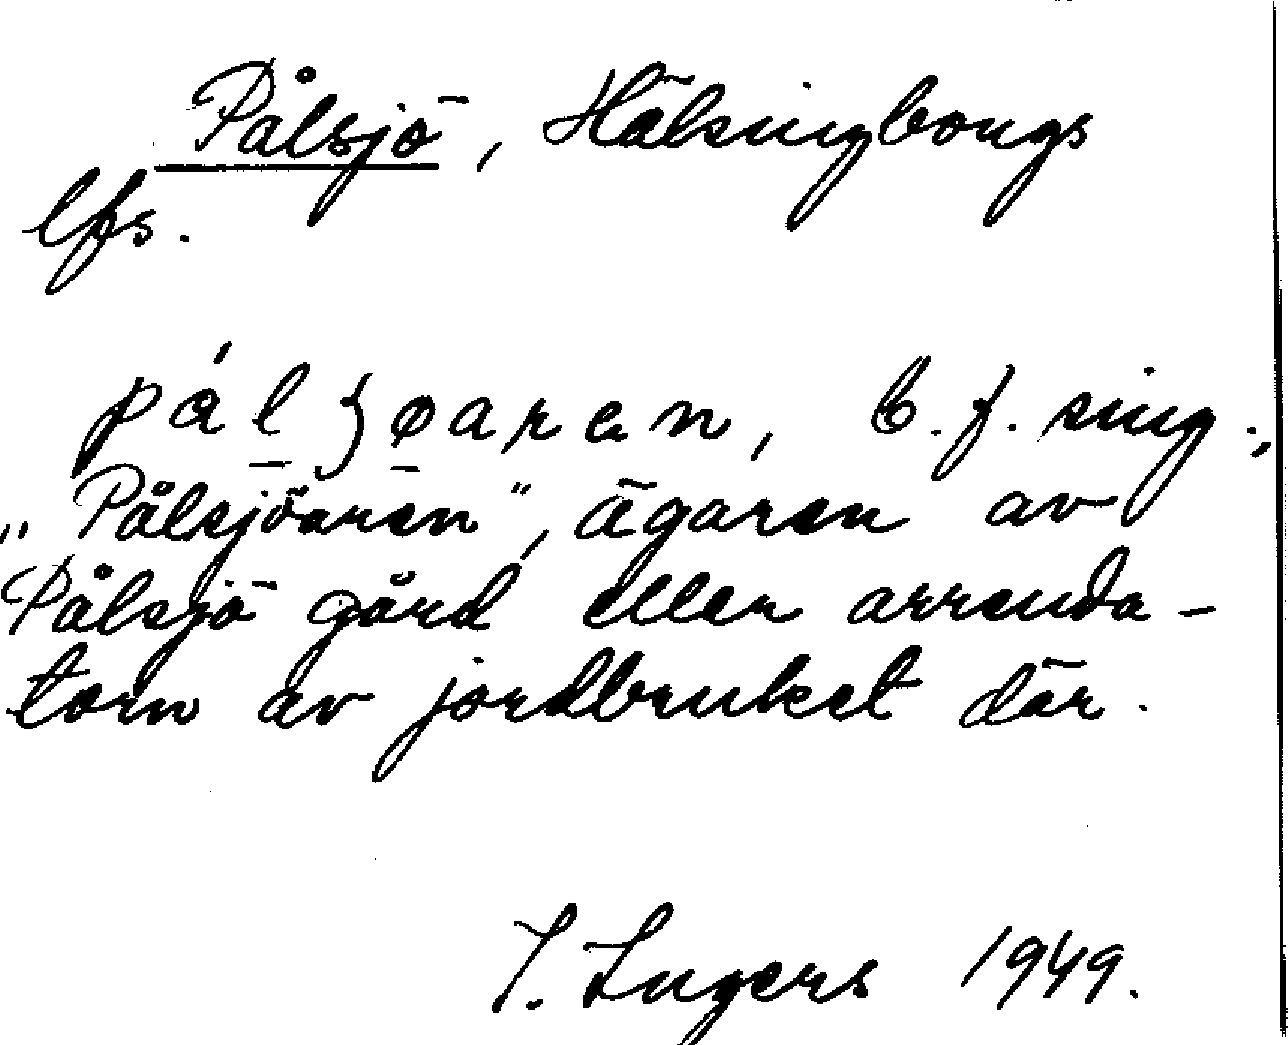 Pålsjö, Hälsingborgs
lfs.
pálʒøaren, b. f. sing.,
„Pålsjöaren”, ägaren av
Pålsjö gård eller arrenda-
torn av jordbruket där.
I. Ingers 1949.